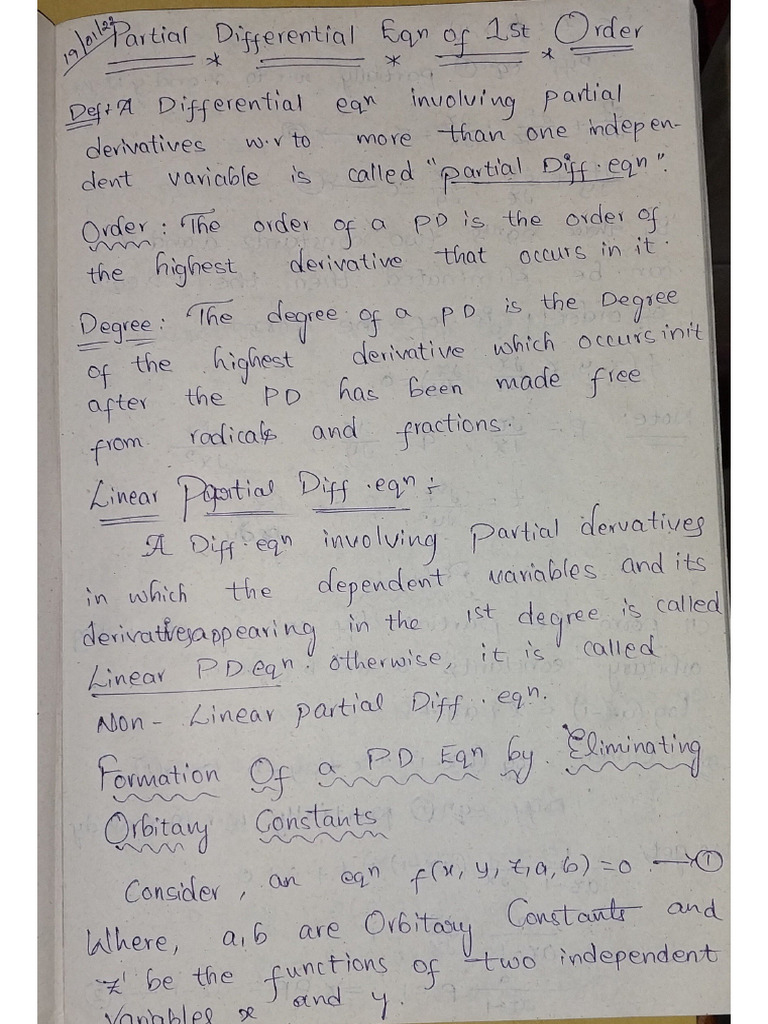 19/01/24 Partial Differential Eqn of 1st Order
Def: A Differential eqn involving partial
derivatives w.r to more than one indepen-
dent variable is called "partial Diff. eqn".
Order: The order of a PD is the order of
the highest derivative that occurs in it.
Degree: The degree of a PD is the Degree
of the highest derivative which occurs in it
after the PD has been made free
from radicals and fractions.
Linear Partial Diff. eqn :-
A Diff. eqn involving Partial dervatives
in which the dependent variables and its
derivatives appearing in the 1st degree is called
Linear PD eqn. otherwise, it is called
Non-Linear partial Diff. eqn.
Formation Of a P.D Eqn by Eliminating
Orbitary Constants
Consider, an eqn f(x, y, z, a, b) = 0 → ①
Where, a, b are Orbitary Constants and
'z' be the functions of two independent
variables x and y.